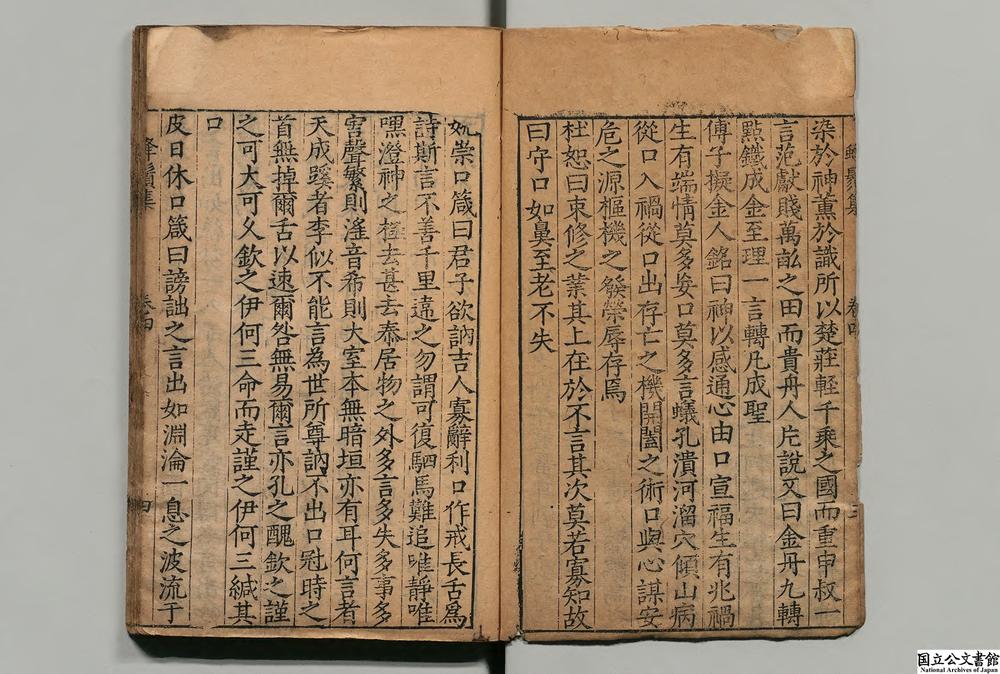 染於神薰於識所以楚莊輕千乘之國而重申叔一
言范獻賤萬畝之田而貴舟人片說又曰金丹九轉
㸃鐵成金至理一言轉凡成聖
傅子擬金人銘曰神以感通心由口宣福生有兆禍
生有端情莫多妄口莫多言蟻孔潰河溜穴傾山病
從口入禍從口出存亡之機開闔之術口與心謀安
危之源樞機之發榮辱存焉
杜恕曰束修之業其上在於不言其次莫若寡知故
曰守口如鼻至老不失
姚崇口箴曰君子欲訥吉人寡辭利口作戒長舌爲
詩斯言不善千里違之勿謂可復駟馬難追唯靜唯
嘿澄神之極去甚去泰居物之外多言多失多事多
害聲繁則滛音希則大室本無暗垣亦有耳何言者
天成蹊者李似不能言為世所尊訥不出口冠時之
首無掉爾舌以速爾咎無易爾言亦孔之醜欽之謹
之可大可久欽之伊何三命而走謹之伊何三緘其
口
皮日休口箴曰謗訕之言出如淵淪一息之波流于
卷四
四
国立公文書館
National Archives of Japan